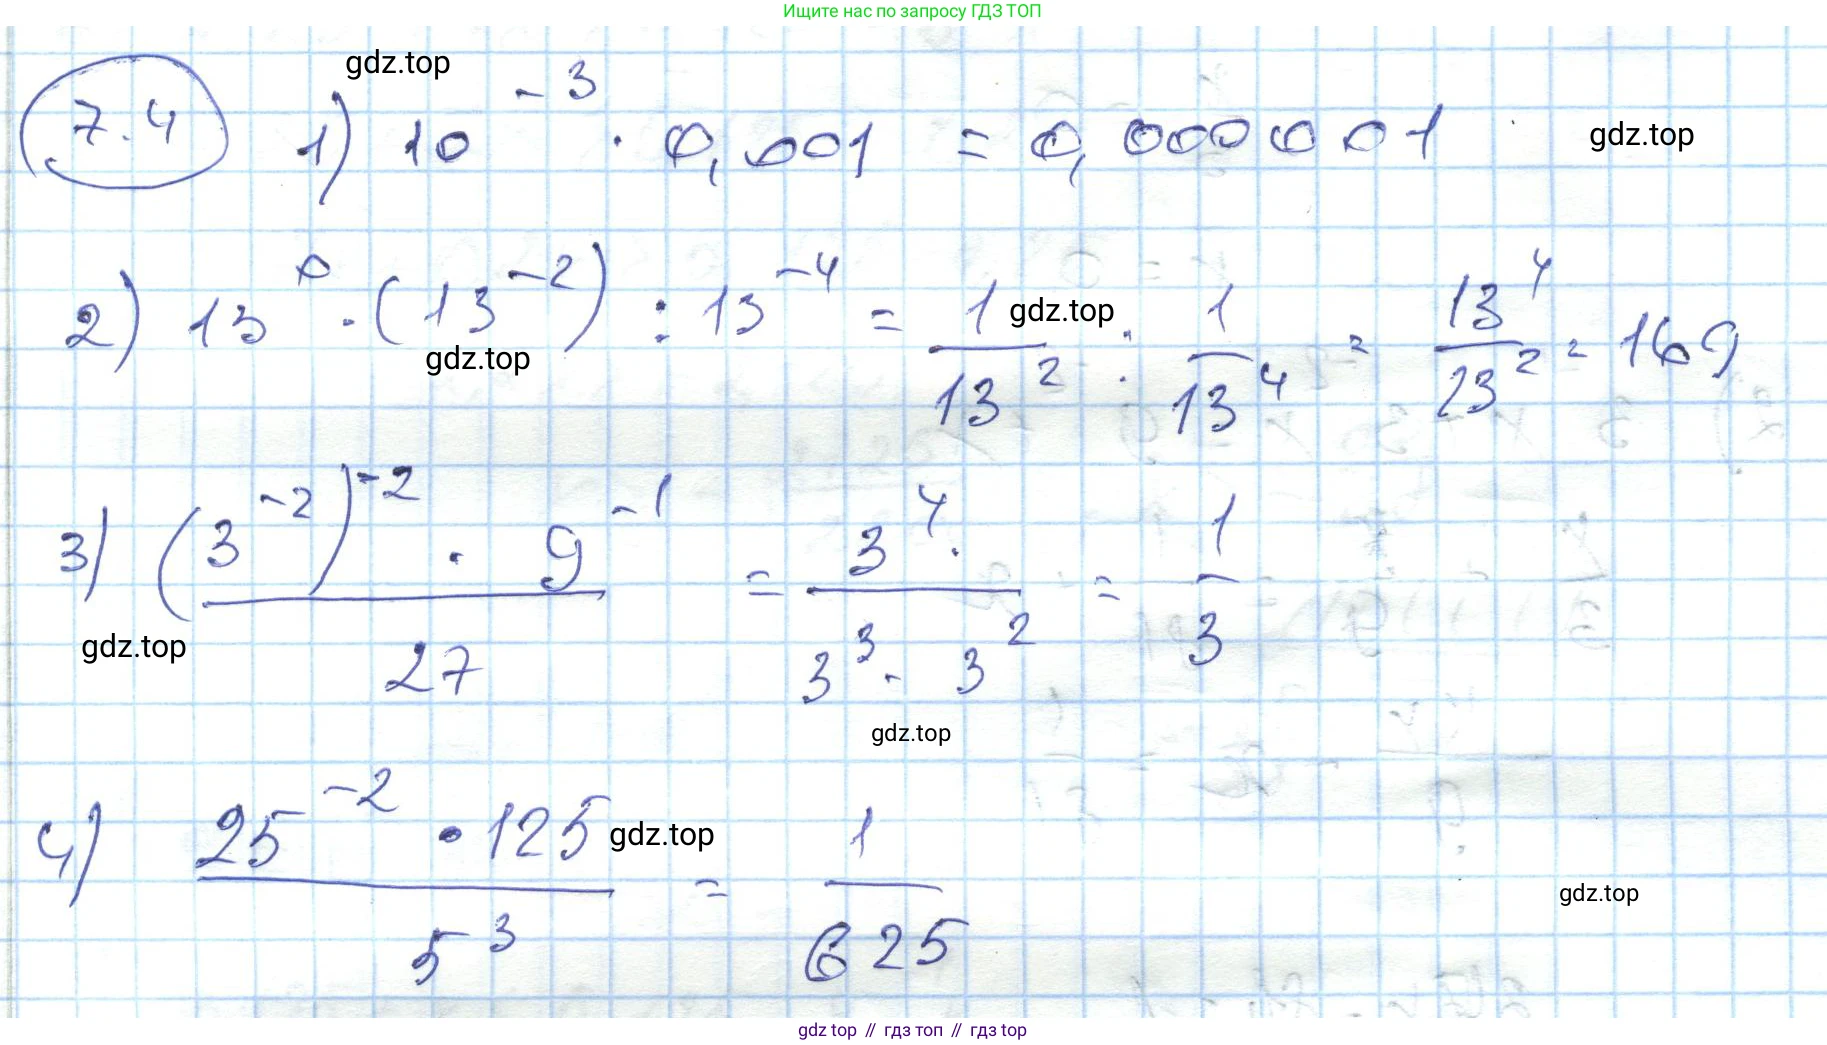 Ищите нас по запросу ГДЗ ТОП
gdz.top
7.4 1) 10⁻³ · 0,001 = 0,000001
gdz.top
2) 13⁰ · (13⁻²) : 13⁻⁴ = 1/13² : 1/13⁴ = 13⁴/23² = 169
gdz.top
gdz.top
3) (3⁻²)⁻² · 9⁻¹ / 27 = 3⁴ · / 3³ · 3² = 1/3
gdz.top
gdz.top
4) 25⁻² · 125 / 5³ = 1/625
gdz.top
gdz.top
gdz top // гдз топ // gdz top